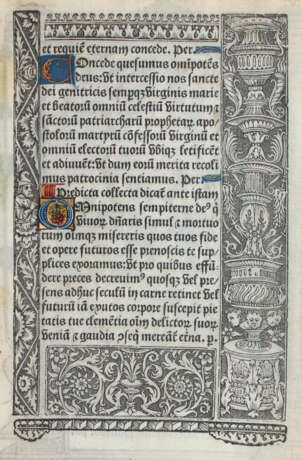 et requiē eternam concede. Per
Cōcede quesumus omīpotēs
deus: Ut intercessio nos sancte
dei genitricis sempqꝫ virginis marie
et beatorū omniū celestiū virtutum &
sāctorū patriarcharū prophetaꝝ apo-
stolorū martyrū cōfessorū virginū et
omniū electorū tuorū ubiqꝫ letificet
et adiuvet: ut dum eorū merita recolimus
patrocinia sentiamus. Per
Predicta collecta dicat̄ ante istam
Omnipotens sempiterne de⁹ q̄
vivoꝝ dn̄aris simul & mortuorum
oīmqꝫ misereris quos tuos fide
et opere futuros esse prenoscis te sup
plices exoramus: ut pro quibus effū
dere preces decreuim⁹ quosqꝫ vel pre
sens adhuc seculū in carne retinet vel
futurū iā exutos corpore suscepit pie
tatis tue clemētia oīm delictoꝝ suoꝝ
veniā & gaudia cōseq̄ mereāt̄ et̄na. p.